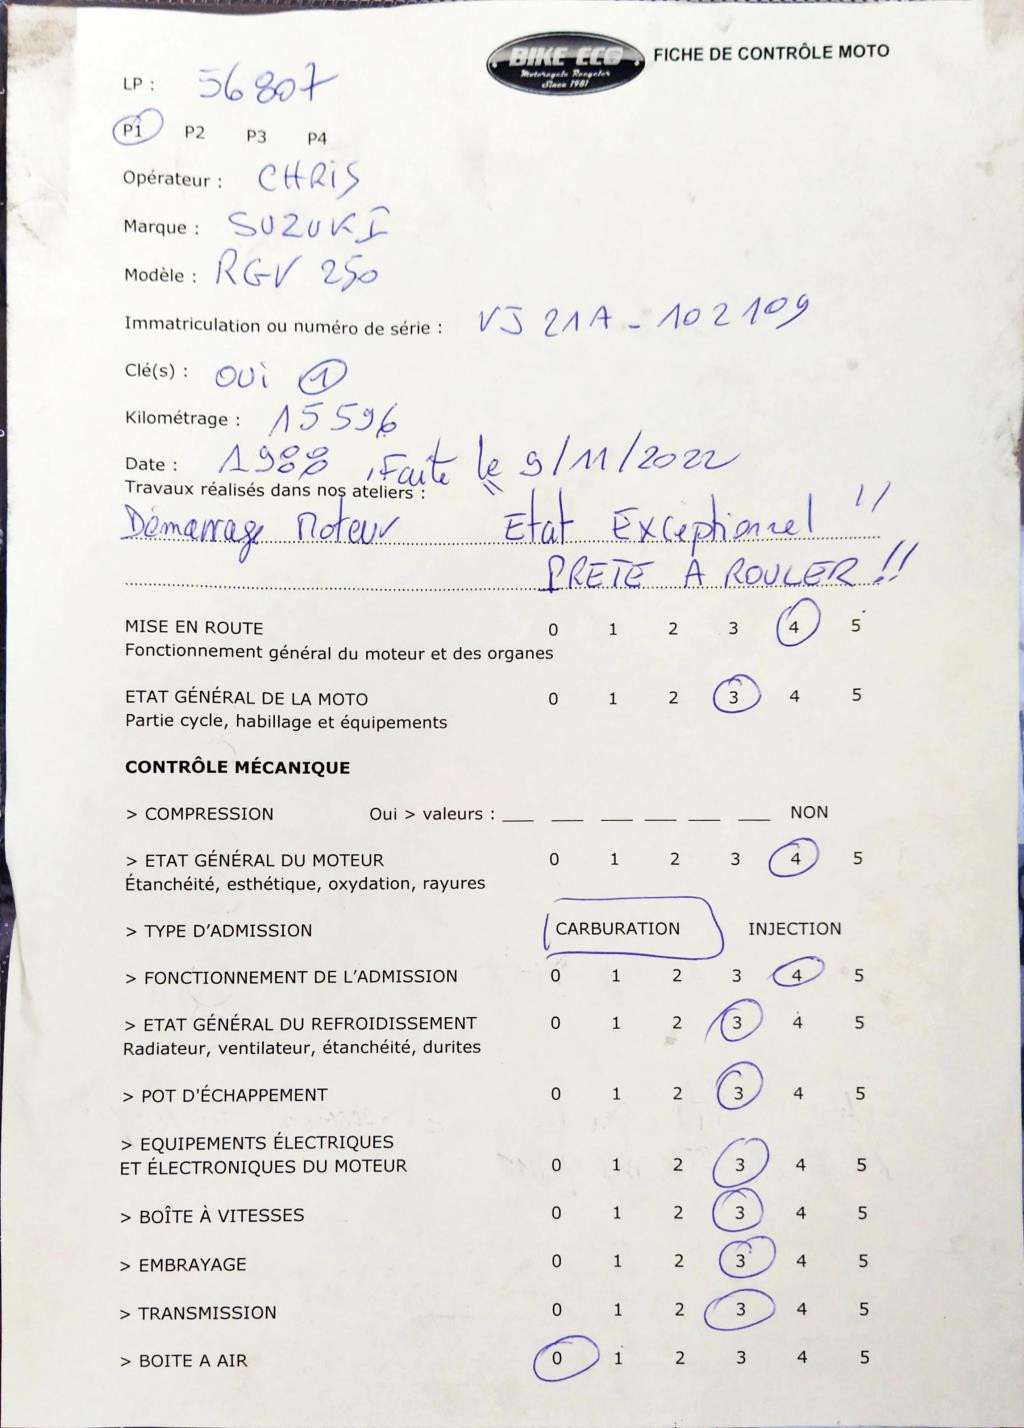 BIKE ECO
Motorcycle Recycler
Since 1981
FICHE DE CONTRÔLE MOTO
LP : 56807
P1 P2 P3 P4
Opérateur : CHRIS
Marque : SUZUKI
Modèle : RGV 250
Immatriculation ou numéro de série : VJ 21A - 102109
Clé(s) : OUi 1
Kilométrage : 15596
Date : 1988, Faite le 9/11/2022
Travaux réalisés dans nos ateliers :
Démarrage Moteur Etat Exceptionnel !!
PRETE A ROULER !!
MISE EN ROUTE 0 1 2 3 4 5
Fonctionnement général du moteur et des organes
ETAT GÉNÉRAL DE LA MOTO 0 1 2 3 4 5
Partie cycle, habillage et équipements
CONTRÔLE MÉCANIQUE
> COMPRESSION Oui > valeurs : ___ ___ ___ ___ ___ ___ NON
> ETAT GÉNÉRAL DU MOTEUR 0 1 2 3 4 5
Étanchéité, esthétique, oxydation, rayures
> TYPE D'ADMISSION CARBURATION INJECTION
> FONCTIONNEMENT DE L'ADMISSION 0 1 2 3 4 5
> ETAT GÉNÉRAL DU REFROIDISSEMENT 0 1 2 3 4 5
Radiateur, ventilateur, étanchéité, durites
> POT D'ÉCHAPPEMENT 0 1 2 3 4 5
> EQUIPEMENTS ÉLECTRIQUES
ET ÉLECTRONIQUES DU MOTEUR 0 1 2 3 4 5
> BOÎTE À VITESSES 0 1 2 3 4 5
> EMBRAYAGE 0 1 2 3 4 5
> TRANSMISSION 0 1 2 3 4 5
> BOITE A AIR 0 1 2 3 4 5